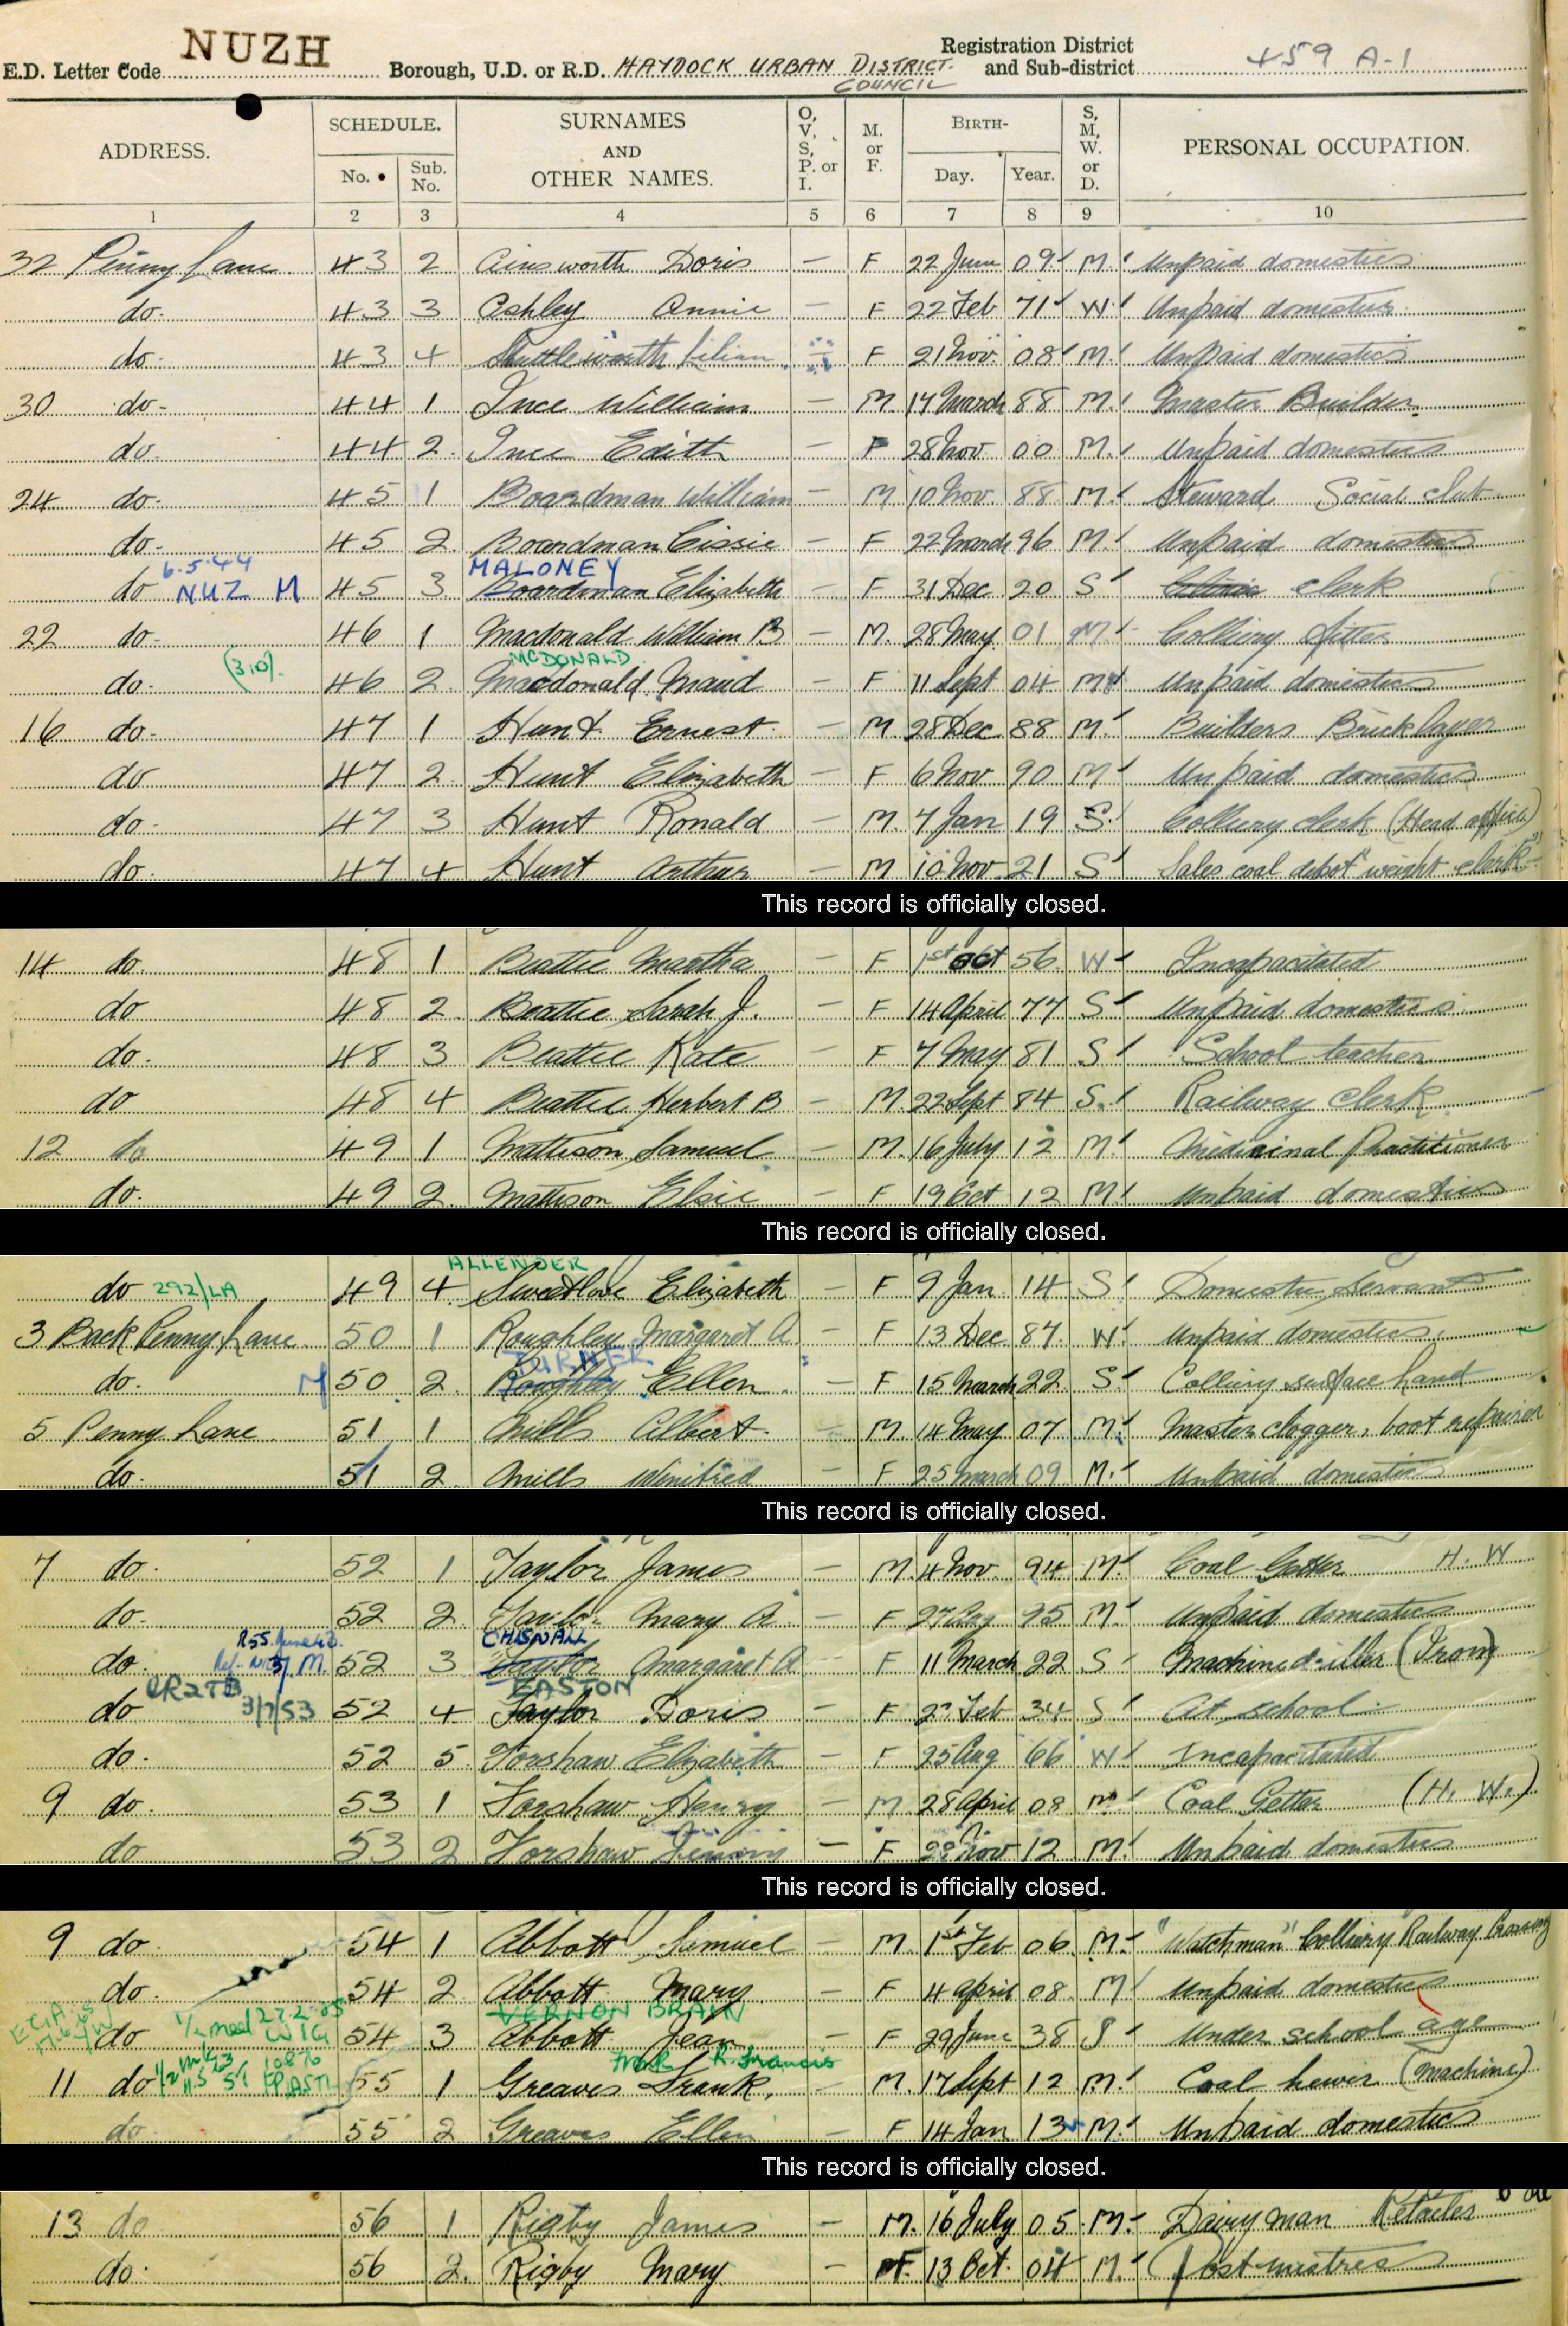 NUZH
E.D. Letter Code Borough, U.D. or R.D. HAYDOCK URBAN DISTRICT COUNCIL Registration District and Sub-district 459 A-1
ADDRESS. SCHEDULE. No. Sub. No. SURNAMES AND OTHER NAMES. O, V, S, P. or I. M. or F. BIRTH- Day. Year. S, M, W. or D. PERSONAL OCCUPATION.
1 2 3 4 5 6 7 8 9 10
32 Penny Lane 43 2 Ainsworth Doris — F 22 June 09 M. Unpaid domestics
do. 43 3 Ashley Annie — F 22 Feb 71 W. Unpaid domestics
do. 43 4 Shuttleworth Lilian — F 21 Nov. 08 M. Unpaid domestics
30 do- 44 1 Ince William — M. 14 March 88 M. Master Builder
do. 44 2. Ince Edith — F 28 Nov 00 M. Unpaid domestics
24 do- 45 1 Boardman William — M. 10 Nov 88 M. Steward Social club
do- 45 2. Boardman Cissie — F 22 March 96 M. Unpaid domestics
6.5.44 MALONEY
do NUZ M 45 3. Boardman Elizabeth — F 31 Dec 20 S clerk
22 do- 46 1 Macdonald William B — M. 28 May 01 M. Colliery fitter
(310). MCDONALD
do. 46 2. Macdonald Maud — F 11 Sept 04 M Unpaid domestics
16 do- 47 1 Hunt Ernest — M 28 Dec 88 M. Builders Bricklayer
do 47 2. Hunt Elizabeth — F 6 Nov 90 M. Unpaid domestics
do- 47 3 Hunt Ronald — M. 7 Jan 19 S. Colliery clerk (Head office)
do. 47 4 Hunt Arthur — M 10 Nov 21 S Sales coal depot "weight clerk"
This record is officially closed.
14 do. 48 1 Beattie Martha — F 1st Oct 56 W Incapacitated
do 48 2. Beattie Sarah J. — F 14 April 77 S Unpaid domestics
do. 48 3 Beattie Kate — F 7 May 81 S School teacher
do 48 4 Beattie Herbert B — M. 22 Sept 84 S. Railway Clerk
12 do 49 1 Mattison Samuel — M. 16 July 12 M. Medicinal Practitioner
do. 49 2. Mattison Elsie — F 19 Oct 12 M. Unpaid domestics
This record is officially closed.
ALLENDER
do 292/LA 49 4. Sweetlove Elizabeth — F 9 Jan 14 S Domestic Servant
3 Back Penny Lane 50 1 Roughley Margaret A — F 13 Dec 87. W. Unpaid domestics
TURNER
do. M 50 2. Roughley Ellen — F 15 March 22 S. Colliery surface hand
5 Penny Lane 51 1 Mills Albert — M. 14 May 07 M. Master clogger, boot repairer
do. 51 2. Mills Winifred — F 25 March 09 M. Unpaid domestics
This record is officially closed.
7 do. 52 1 Taylor James — M. 4 Nov. 94 M. Coal Getter H. W
do. 52 2. Taylor Mary A. — F 27 Aug 95 M. Unpaid domestics
CHISNALL
do. M. 52 3 Taylor Margaret A — F 11 March 22 S Machine driller (Iron)
CR2TB EASTON
do 3/7/53 52 4 Taylor Doris — F Feb 34 S At school
do. 52 5. Forshaw Elizabeth — F 25 Aug 66 W Incapacitated
9 do. 53 1 Forshaw Henry — M 28 April 08 M. Coal Getter (H. W.)
do 53 2 Forshaw — F 22 Nov 12 M. Unpaid domestics
This record is officially closed.
9 do. 54 1 Abbott Samuel — M. 1st Feb 06 M. "Watchman" Colliery Railway Crossing
do. 54 2. Abbott Mary — F 4 April 08 M Unpaid domestics
VERNON BRAIN
do 54 3 Abbott Jean — F 29 June 38 S Under school age
R. Francis
11 do 55 1 Greaves Frank — M. 17 Sept 12 M. Coal hewer (machine)
do. 55 2 Greaves Ellen — F 14 Jan 13 M. Unpaid domestics
This record is officially closed.
13 do 56 1 Rigby James — M. 16 July 05 M. Dairyman Retailer
do. 56 2. Rigby Mary — F. 13 Oct. 04 M. Postmistress